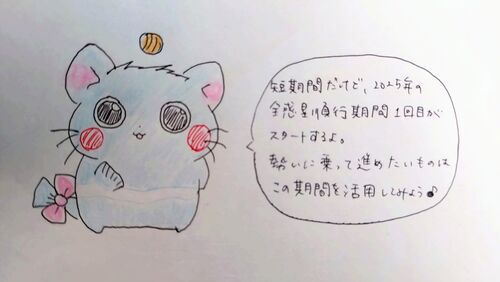 短期間だけど、2025年の
全惑星順行期間1回目が
スタートするよ。
勢いに乗って進めたいものは
この期間を活用してみよう♪